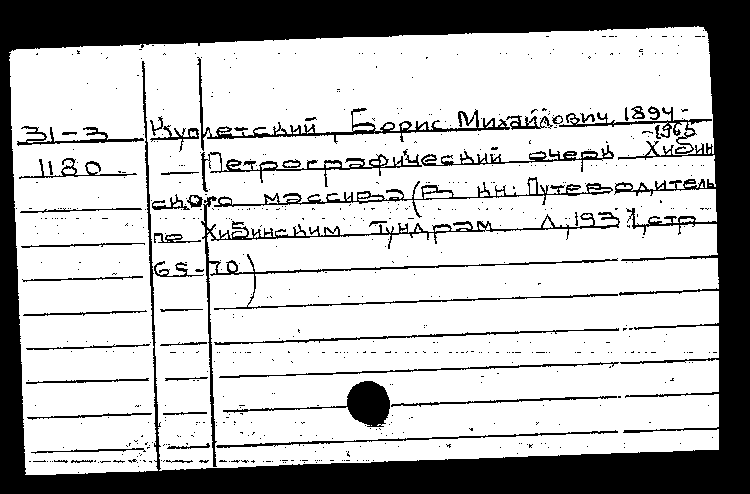 31-3 Куплетский, Борис Михайлович, 1894-
-1965
1180 Петрографический очерк Хибин
ского массива (В кн: Путеводитель
по Хибинским Тундрам Л., 1931, стр
65-70)